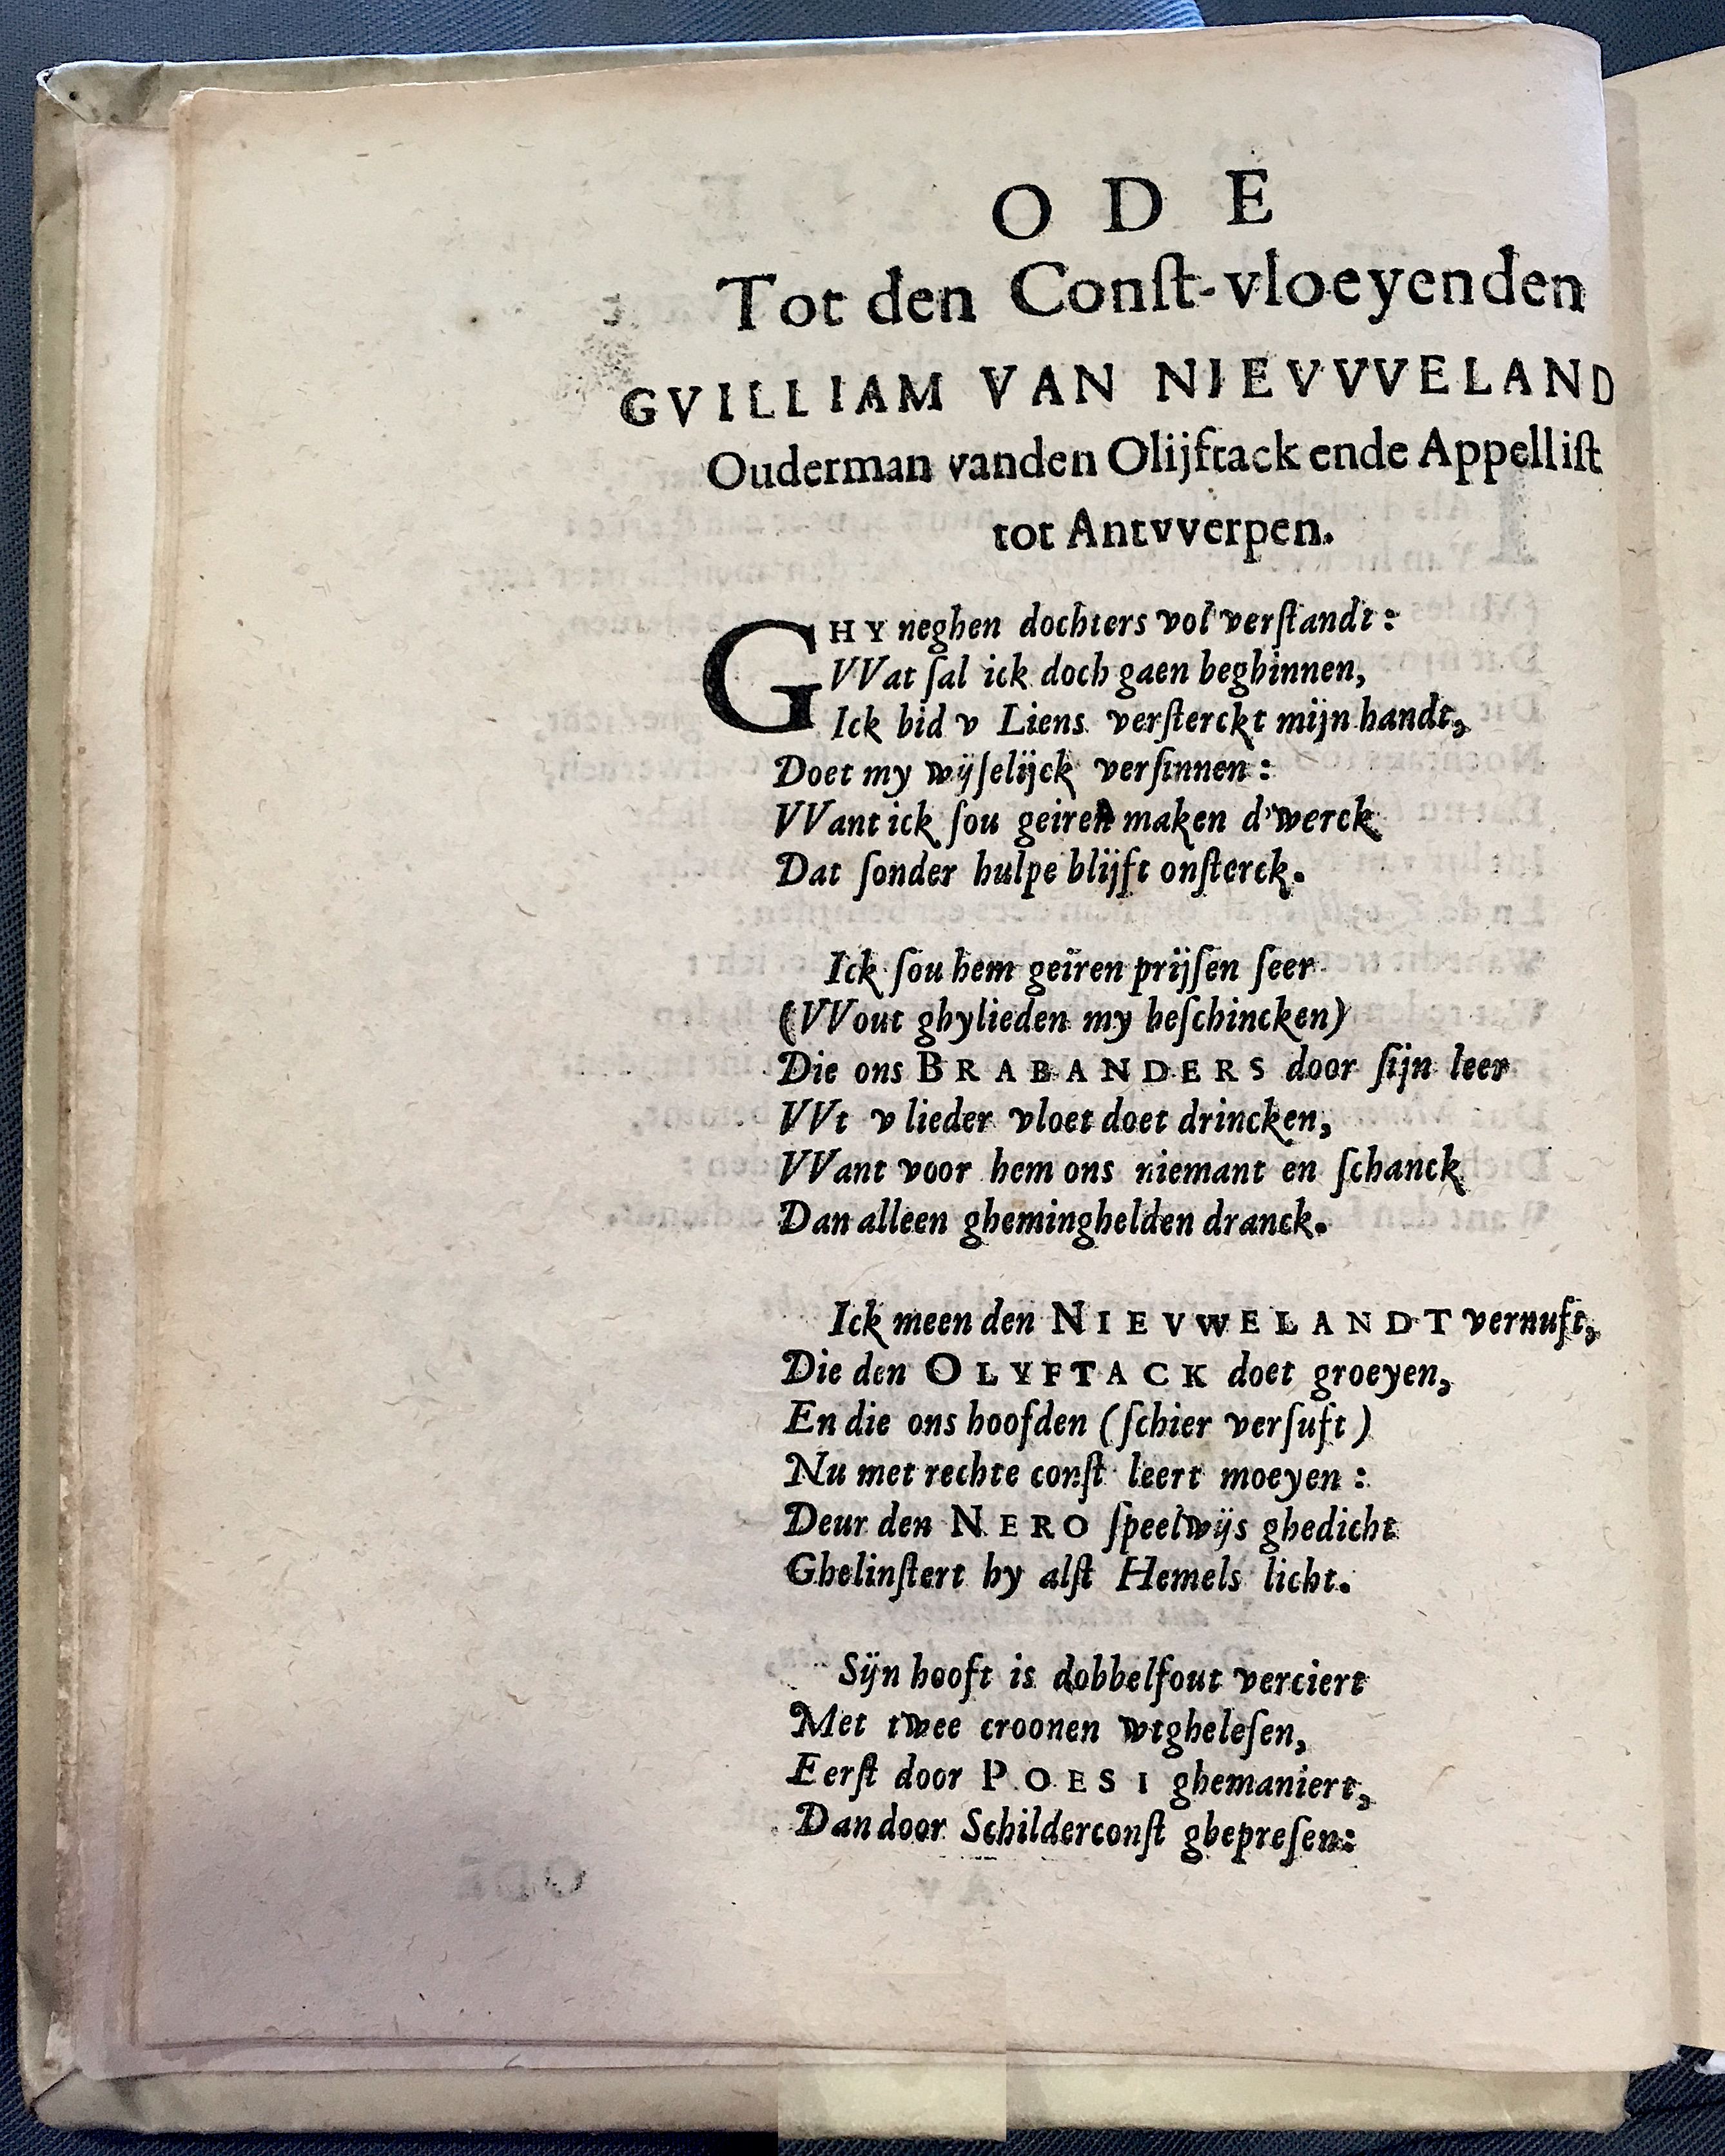 ODE
Tot den Conſt-vloeyenden
GVILLIAM VAN NIEVVVELAND
Ouderman vanden Olijftack ende Appelliſt
tot Antvverpen.
GHY neghen dochters vol verſtandt:
VVat ſal ick doch gaen beghinnen,
Ick bid v Liens verſterckt mijn handt,
Doet my wijſelijck verſinnen:
VVant ick ſou geiren maken d'werck
Dat ſonder hulpe blijft onſterck.
Ick ſou hem geiren prijſen ſeer
(VVout ghylieden my beſchincken)
Die ons BRABANDERS door ſijn leer
VVt v lieder vloet doet drincken,
VVant voor hem ons niemant en ſchanck
Dan alleen gheminghelden dranck.
Ick meen den NIEVWELANDT vernuft,
Die den OLYFTACK doet groeyen,
En die ons hoofden (ſchier verſuft)
Nu met rechte conſt leert moeyen:
Deur den NERO ſpeelwijs ghedicht
Ghelinſtert by alſt Hemels licht.
Sijn hooft is dobbelfout verciert
Met twee croonen wtgheleſen,
Eerſt door POESI ghemaniert,
Dan door Schilderconſt ghepreſen: